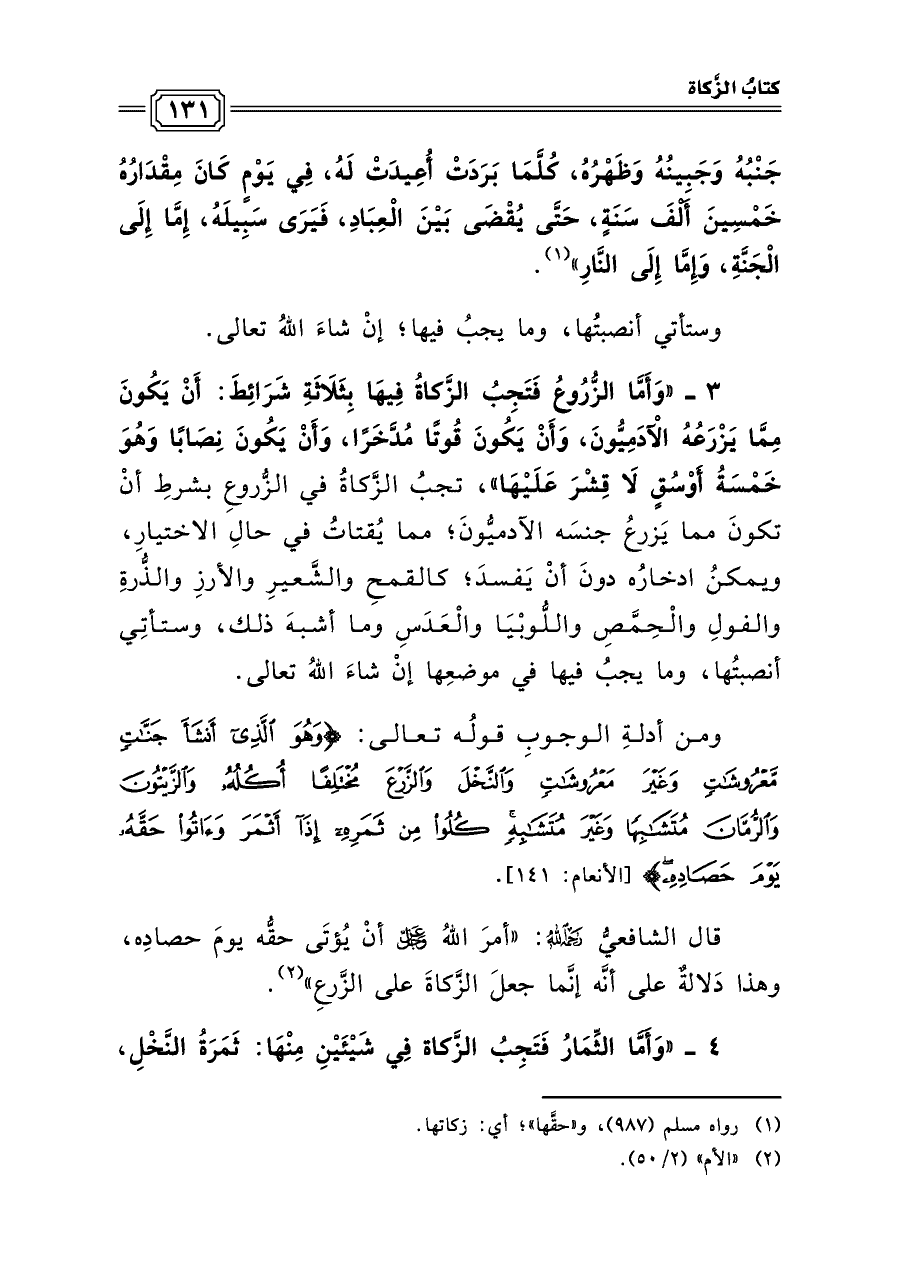 كتابُ الزَّكاة
١٣١
جَنْبُهُ وَجَبِينُهُ وَظَهْرُهُ، كُلَّمَا بَرَدَتْ أُعِيدَتْ لَهُ، فِي يَوْمٍ كَانَ مِقْدَارُهُ
خَمْسِينَ أَلْفَ سَنَةٍ، حَتَّى يُقْضَى بَيْنَ الْعِبَادِ، فَيَرَى سَبِيلَهُ، إِمَّا إِلَى
الْجَنَّةِ، وَإِمَّا إِلَى النَّارِ»(١).
وستأتي أنصبتُها، وما يجبُ فيها؛ إنْ شاءَ اللهُ تعالى.
٣ ـ «وَأَمَّا الزُّرُوعُ فَتَجِبُ الزَّكاةُ فِيهَا بِثَلَاثَةِ شَرَائِطَ: أَنْ يَكُونَ
مِمَّا يَزْرَعُهُ الْآدَمِيُّونَ، وَأَنْ يَكُونَ قُوتًا مُدَّخَرًا، وَأَنْ يَكُونَ نِصَابًا وَهُوَ
خَمْسَةُ أَوْسُقٍ لَا قِشْرَ عَلَيْهَا»، تجبُ الزَّكاةُ في الزُّروعِ بشرطِ أنْ
تكونَ مما يَزرعُ جنسَه الآدميُّونَ؛ مما يُقتاتُ في حالِ الاختيارِ،
ويمكنُ ادخارُه دونَ أنْ يَفسدَ؛ كالقمحِ والشَّعيرِ والأرزِ والذُّرةِ
والفولِ والْحِمَّصِ واللُّوبْيَا والْعَدَسِ وما أشبهَ ذلك، وستأتِي
أنصبتُها، وما يجبُ فيها في موضعِها إنْ شاءَ اللهُ تعالى.
ومن أدلةِ الوجوبِ قولُه تعالى: ﴿وَهُوَ ٱلَّذِىٓ أَنشَأَ جَنَّٰتٖ
مَّعۡرُوشَٰتٖ وَغَيۡرَ مَعۡرُوشَٰتٖ وَٱلنَّخۡلَ وَٱلزَّرۡعَ مُخۡتَلِفًا أُكُلُهُۥ وَٱلزَّيۡتُونَ
وَٱلرُّمَّانَ مُتَشَٰبِهٗا وَغَيۡرَ مُتَشَٰبِهٖۚ كُلُواْ مِن ثَمَرِهِۦٓ إِذَآ أَثۡمَرَ وَءَاتُواْ حَقَّهُۥ
يَوۡمَ حَصَادِهِۦۖ﴾ [الأنعام: ١٤١].
قال الشافعيُّ رَحِمَهُ اللهُ: «أمرَ اللهُ عَزَّ وَجَلَّ أنْ يُؤتَى حقُّه يومَ حصادِه،
وهذا دَلالةٌ على أنَّه إنَّما جعلَ الزَّكاةَ على الزَّرعِ»(٢).
٤ ـ «وَأَمَّا الثِّمَارُ فَتَجِبُ الزَّكاة فِي شَيْئَيْنِ مِنْهَا: ثَمَرَةُ النَّخْلِ،
(١) رواه مسلم (٩٨٧)، و«حقَّها»؛ أي: زكاتها.
(٢) «الأم» (٢/ ٥٠).